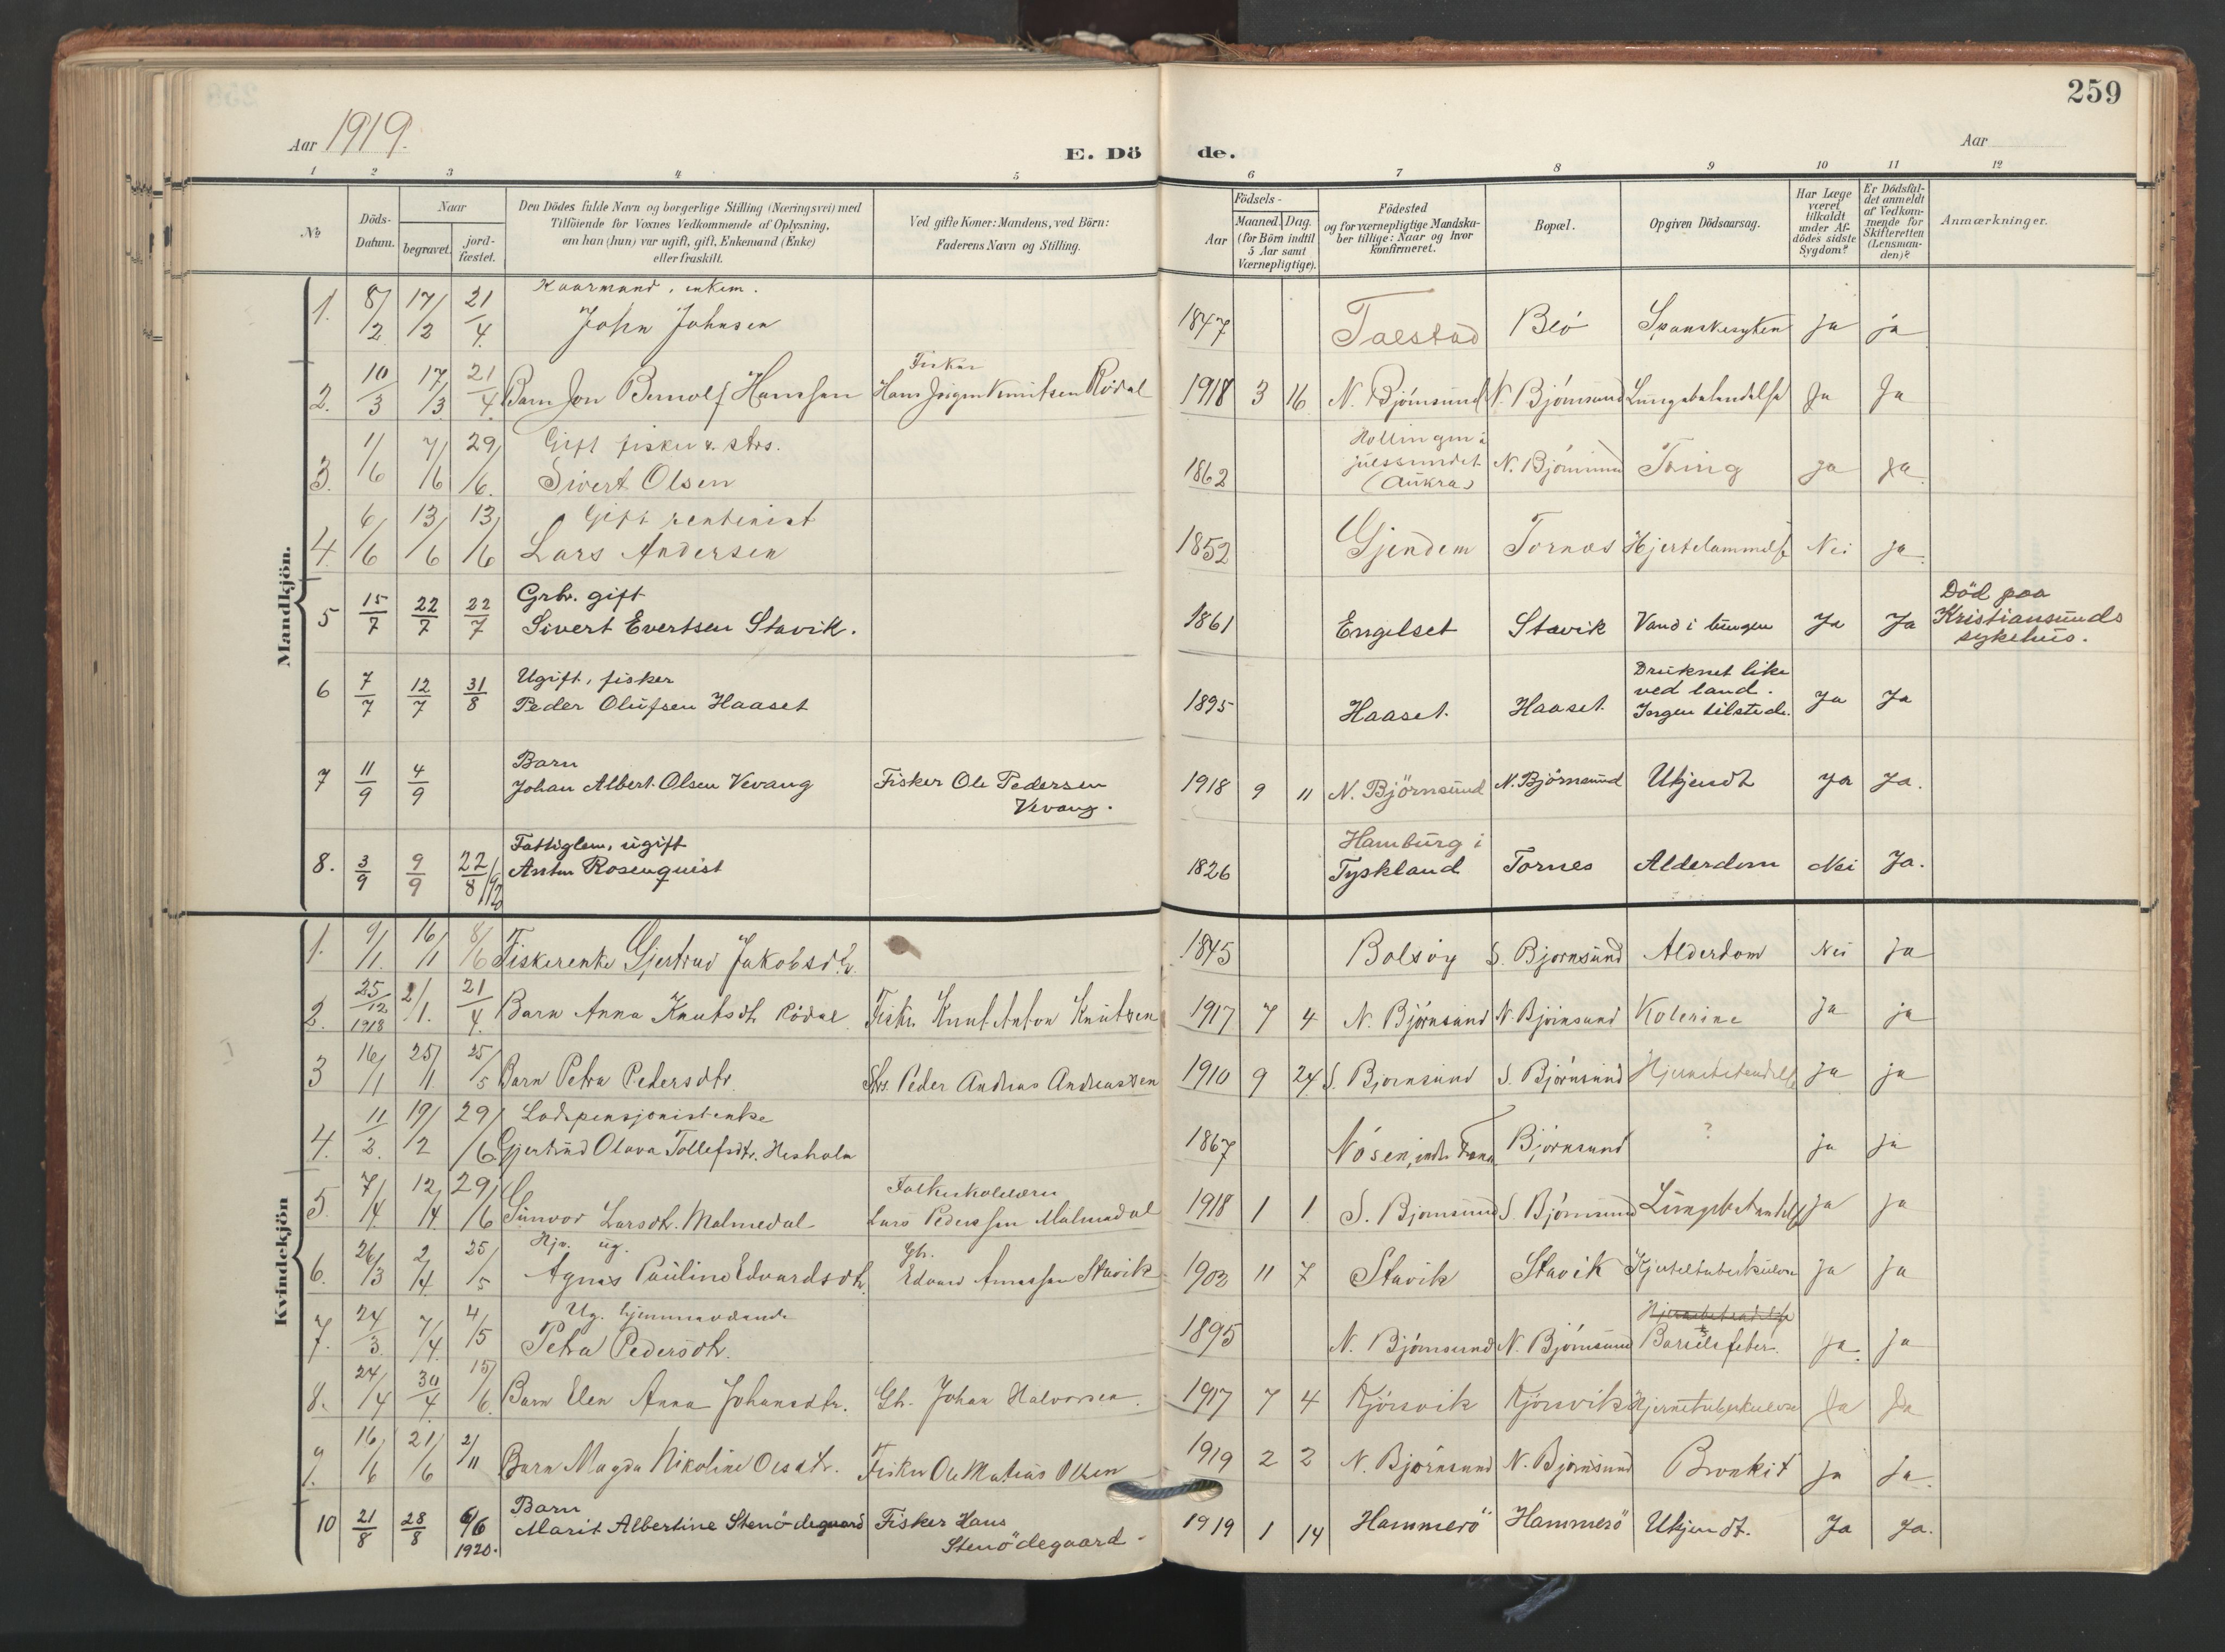 259
Aar 1919.
E. Döde.
Aar
1 2 3 4 5 6 7 8 9 10 11 12
No
Döds-Datum.
Naar
begravet.
jord-fæstet.
Den Dödes fulde Navn og borgerlige Stilling (Næringsvei) med
Tilföiende for Voxnes Vedkommende af Oplysning,
om han (hun) var ugift, gift, Enkemand (Enke)
eller fraskilt.
Ved gifte Koner: Mandens, ved Börn:
Faderens Navn og Stilling.
Födsels-
Aar
Maaned. Dag.
(for Börn indtil
5 Aar samt
Værnepligtige).
Födested
og for værnepligtige Mandska-
ber tillige: Naar og hvor
konfirmeret.
Bopæl.
Opgiven Dödsaarsag.
Har Læge
været
tilkaldt
under Af-
dödes sidste
Sygdom?
Er Dödsfal-
det anmeldt
af Vedkom-
mende for
Skifteretten
(Lensman-
den)?
Anmærkninger.
Mandkjön.
1. 8/2 17/2 21/4 Kaarmand, enkem.
John Johnsen 1847 Talstad Bló Spanskesyken ja ja
2. 10/3 17/3 21/4 Barn Jon Bernolf Hanssen Fisker
Hans Knutsen Rödal 1918 3 16 N. Bjórnsund N. Bjórnsund Lungebetendelse Ja Ja
3. 1/6 7/6 29/6 Gift fisker & strs.
Sivert Olsen 1862 Hollingen i
julssundet
(Aukra) N. Bjórnsund Tæring ja ja.
4. 6/6 13/6 13/6 Gift rentenist
Lars Andersen 1852 Gjendem Tornæs Hjertelammelse Nei ja.
5 15/7 22/7 22/7 Grbr. gift
Sivert Evertsen Stavik. 1861 Engelset Stavik Vand i lungen Ja Ja Död paa
Kristiansunds
sykehus.
6 7/7 12/7 31/8 Ugift, fisker
Peder Olufsen Haaset 1895 Haaset. Haaset. Druknet like
ved land.
Ingen tilstede. Ja Ja
7 11/9 4/9 Barn
Johan Albert Olsen Vevang Fisker Ole Pedersen
Vevang. 1918 9 11 N. Björnsund N. Björnsund Ukjendt Ja Ja.
8. 3/9 9/9 22/8 1920 Fattiglem, ugift
Anton Rosenquist 1826 Hamburg i
Tyskland Tornes Alderdom Nei Ja.
Kvindekjön
1. 9/1 16/1 8/6 Fiskerenke Gjertrud Jakobsdtr. 1845 Bolsöy S. Bjornsund Alderdom Nei ja
2. 25/12 1918 2/1. 21/4. Barn Anna Knutsdt. Rödal Fisker Knut Anton Knutsen 1917 7 4 N. Bjórnsund N. Bjórnsund Kolerine Ja ja
3 16/1 25/1. 25/5 Barn Petra Pedersdtr. Strs. Peder Andreas Andreassen 1910 9 24 S. Bjornsund S. Bjórnsund Hjernebetendelse ja ja
4. 11/2. 19/2 29/6 Lodspensjonistenke
Gjertrud Olava Tollefsdtr. Hesholm 1867 Nósen, indre Fræna Bjórnsund ? ja ja
5. 7/4 12/4. 29/6 Sunvor Larsdt. Malmedal Folkeskolelærer
Lars Pederssen Malmedal 1918 1 1 S. Bjornsund S. Bjórnsund Lungebetendelse ja ja
6. 26/3 2/4 25/5 Hjv. ug.
Agnes Pauline Edvardsdtr. Gbr.
Edvard Amassen Stavik 1903 11 7 Stavik Stavik Kjerteltuberkulose ja ja
7. 24/3. 7/4. 4/5 Ug. hjemmeværende
Petra Pedersdtr. 1895 N. Bjórnsund N. Bjórnsund Hjernebetendelse
Barselsfeber. ja. ja
8. 24/4 30/4. 15/6. Barn Elen Anna Johansdtr. Gb. Johan Halvorsen. 1917 7 4 Kjórsvik Kjórsvik Hjernetuberkulose Ja Ja
9. 16/6 21/6 2/11 Barn Magda Nikoline Olsdtr. Fisker Ole Matias Olsen 1919 2 2 N. Bjórnsund N. Bjórnsund Bronkit ja ja.
10 21/8 28/8 6/6 1920. Barn
Marit Albertine Stenödegaard Fisker Hans
Stenödegaard 1919 1 14 Hammerö Hammerö Ukjendt. Ja Ja.